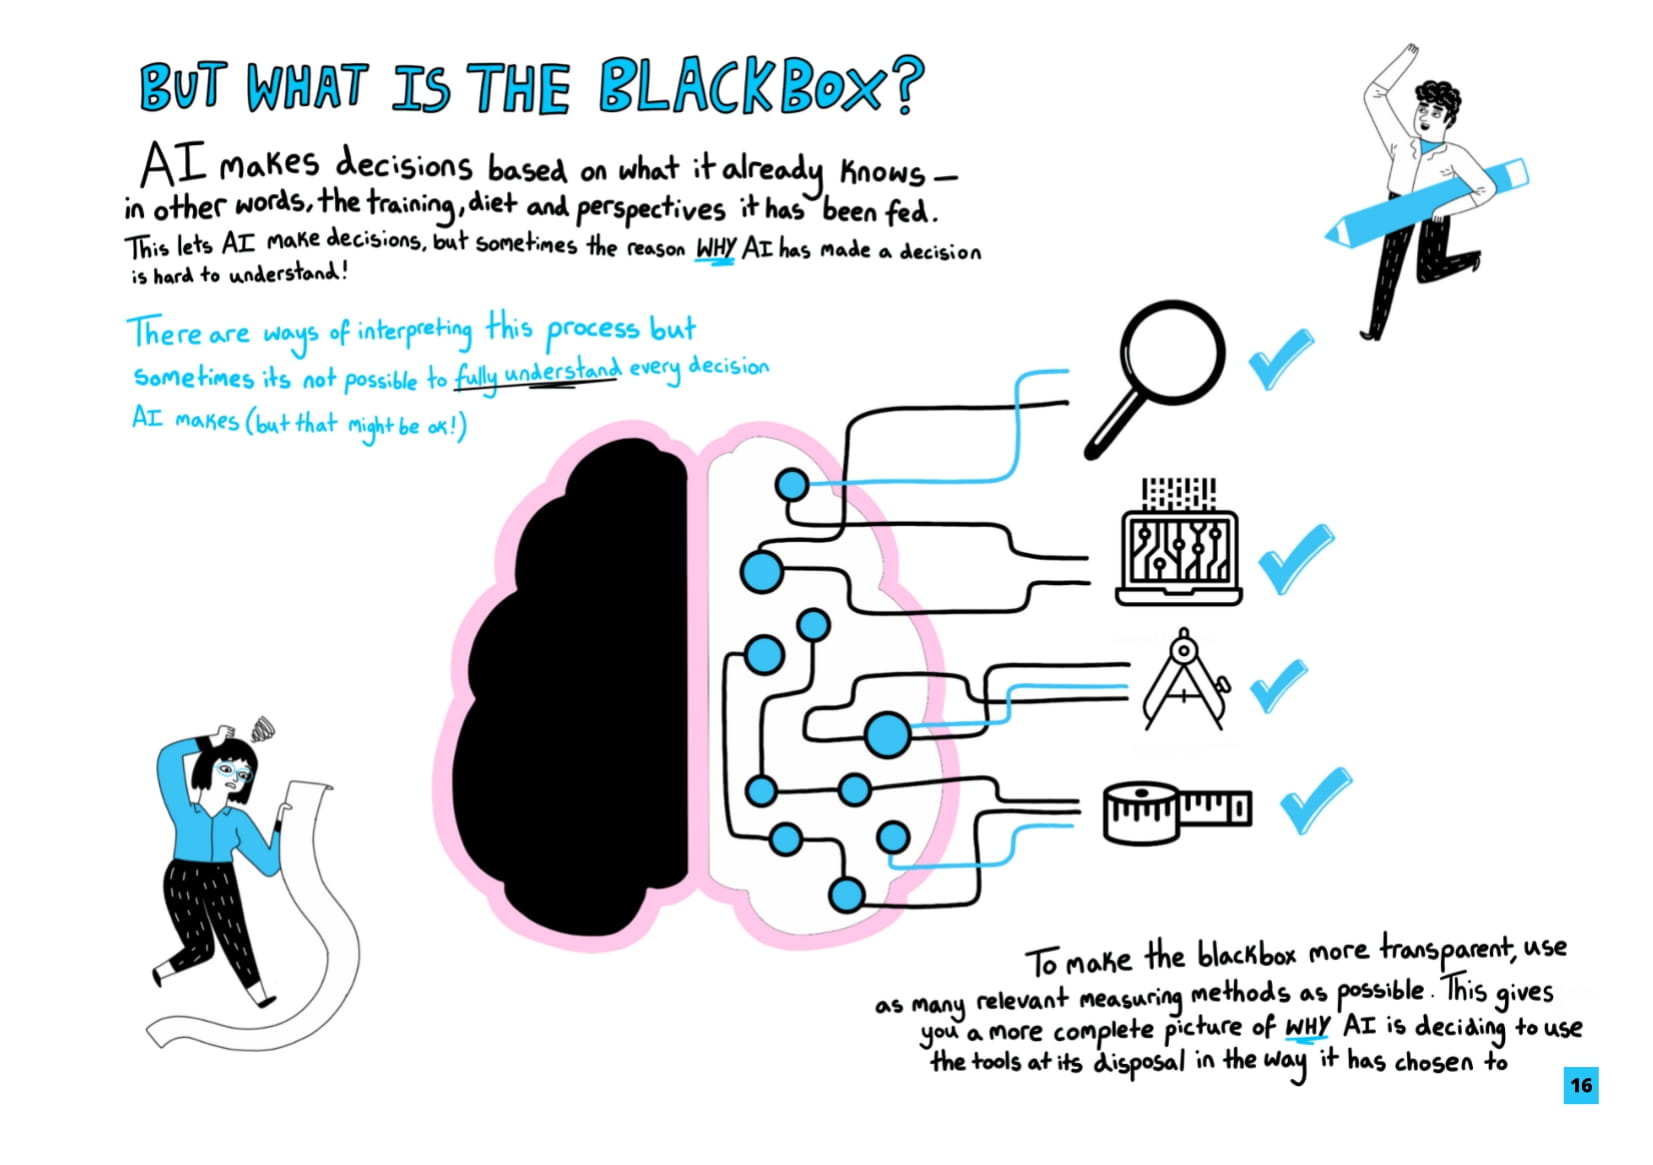 BUT WHAT IS THE BLACKBOX?
AI makes decisions based on what it already knows –
in other words, the training, diet and perspectives it has been fed.
This lets AI make decisions, but sometimes the reason WHY AI has made a decision
is hard to understand!
There are ways of interpreting this process but
sometimes its not possible to fully understand every decision
AI makes (but that might be ok!)
To make the blackbox more transparent, use
as many relevant measuring methods as possible. This gives
you a more complete picture of WHY AI is deciding to use
the tools at its disposal in the way it has chosen to
16